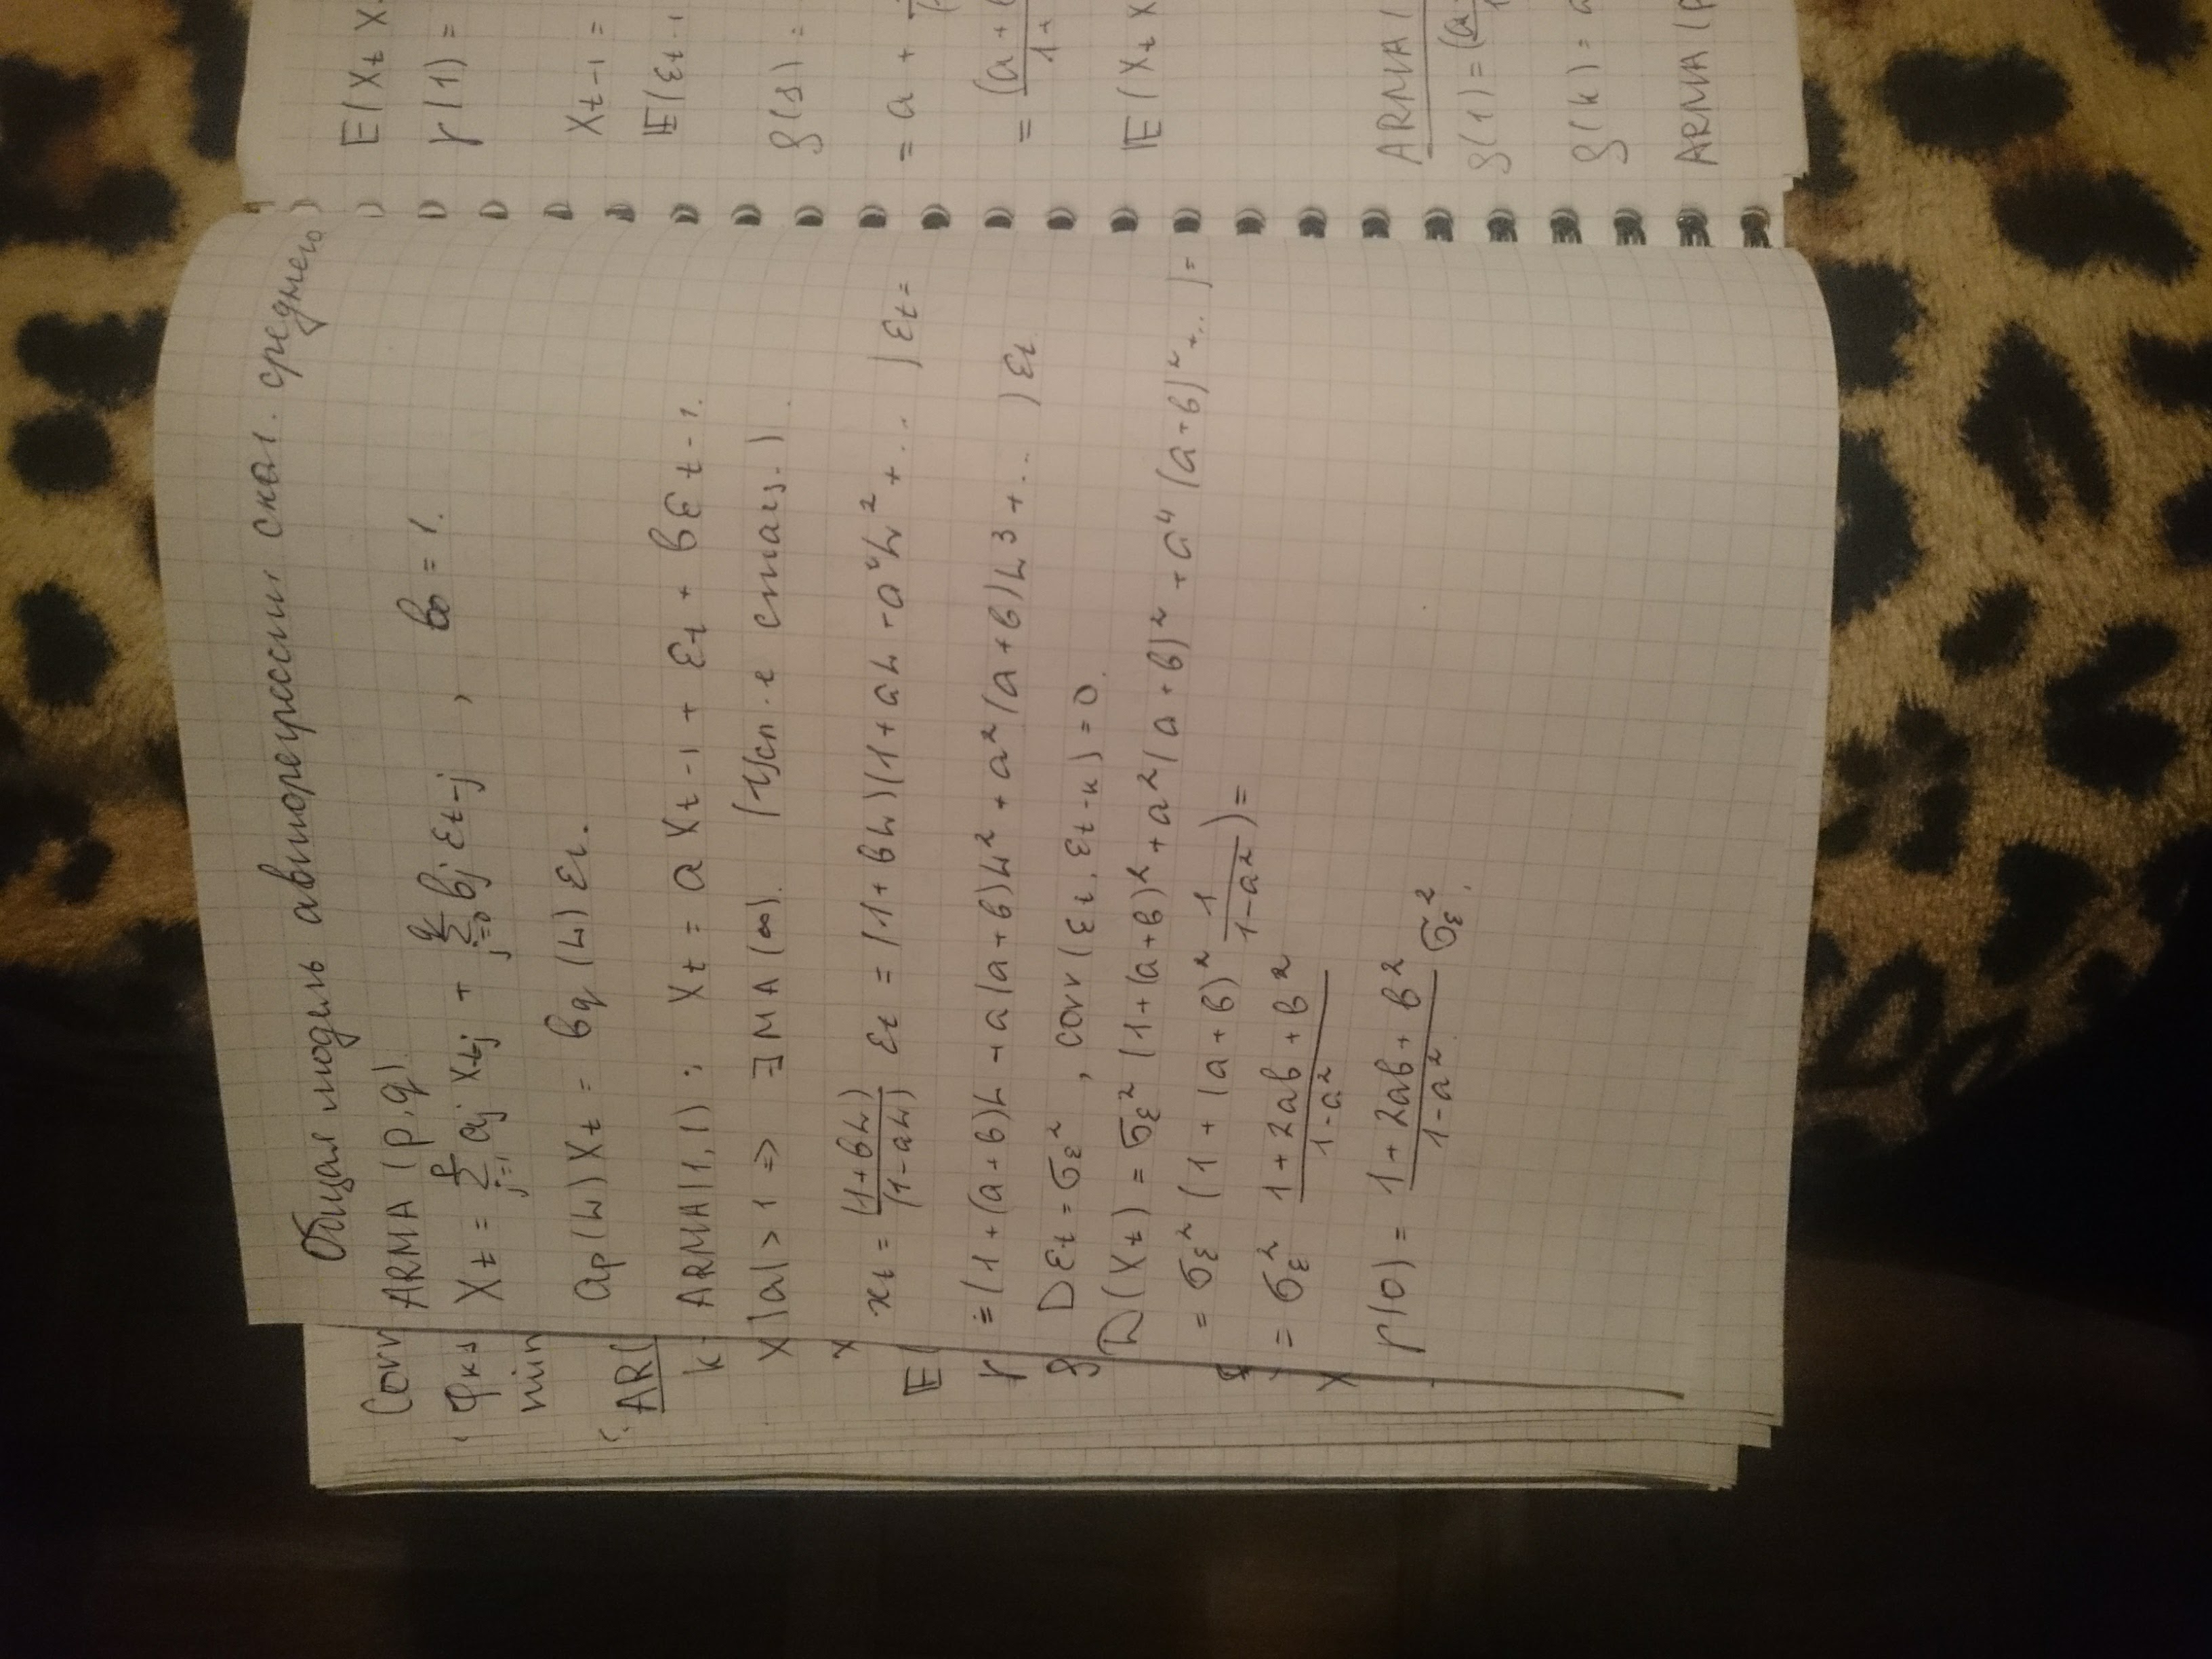 Общая модель авторегрессии скол. среднего
ARMA (p,q)
X_t = Σ_{j=1}^{p} a_j X_{t-j} + Σ_{j=0}^{q} b_j ε_{t-j} , b_0 = 1.
a_p(L) X_t = b_q(L) ε_t.
ARMA(1,1) : X_t = a X_{t-1} + ε_t + b ε_{t-1}.
|a| > 1 => ∃ MA(∞). (Усл. е стац.).
x_t = (1+bL)/(1-aL) ε_t = (1+bL)(1+aL+a²L²+... )ε_t =
= (1+(a+b)L+a(a+b)L²+a²(a+b)L³+... )ε_t
Dε_t = σ_ε² , corr(ε_t, ε_{t-k}) = 0.
D(X_t) = σ_ε² (1+(a+b)²+a²(a+b)²+a⁴(a+b)²+... ) =
= σ_ε² (1+(a+b)² 1/(1-a²)) =
= σ_ε² (1+2ab+b²)/(1-a²)
γ(0) = (1+2ab+b²)/(1-a²) σ_ε².
Corr
φ_ks
min
AR(
k
X
x
E(
γ
ρ
X
E(X_t X
γ(1) =
X_{t-1} =
E(ε_{t-1}
ρ(s) =
= a +
= (a+
1+
E(X_t X
ARMA(
ρ(1) = (a
ρ(k) = a
ARMA(p